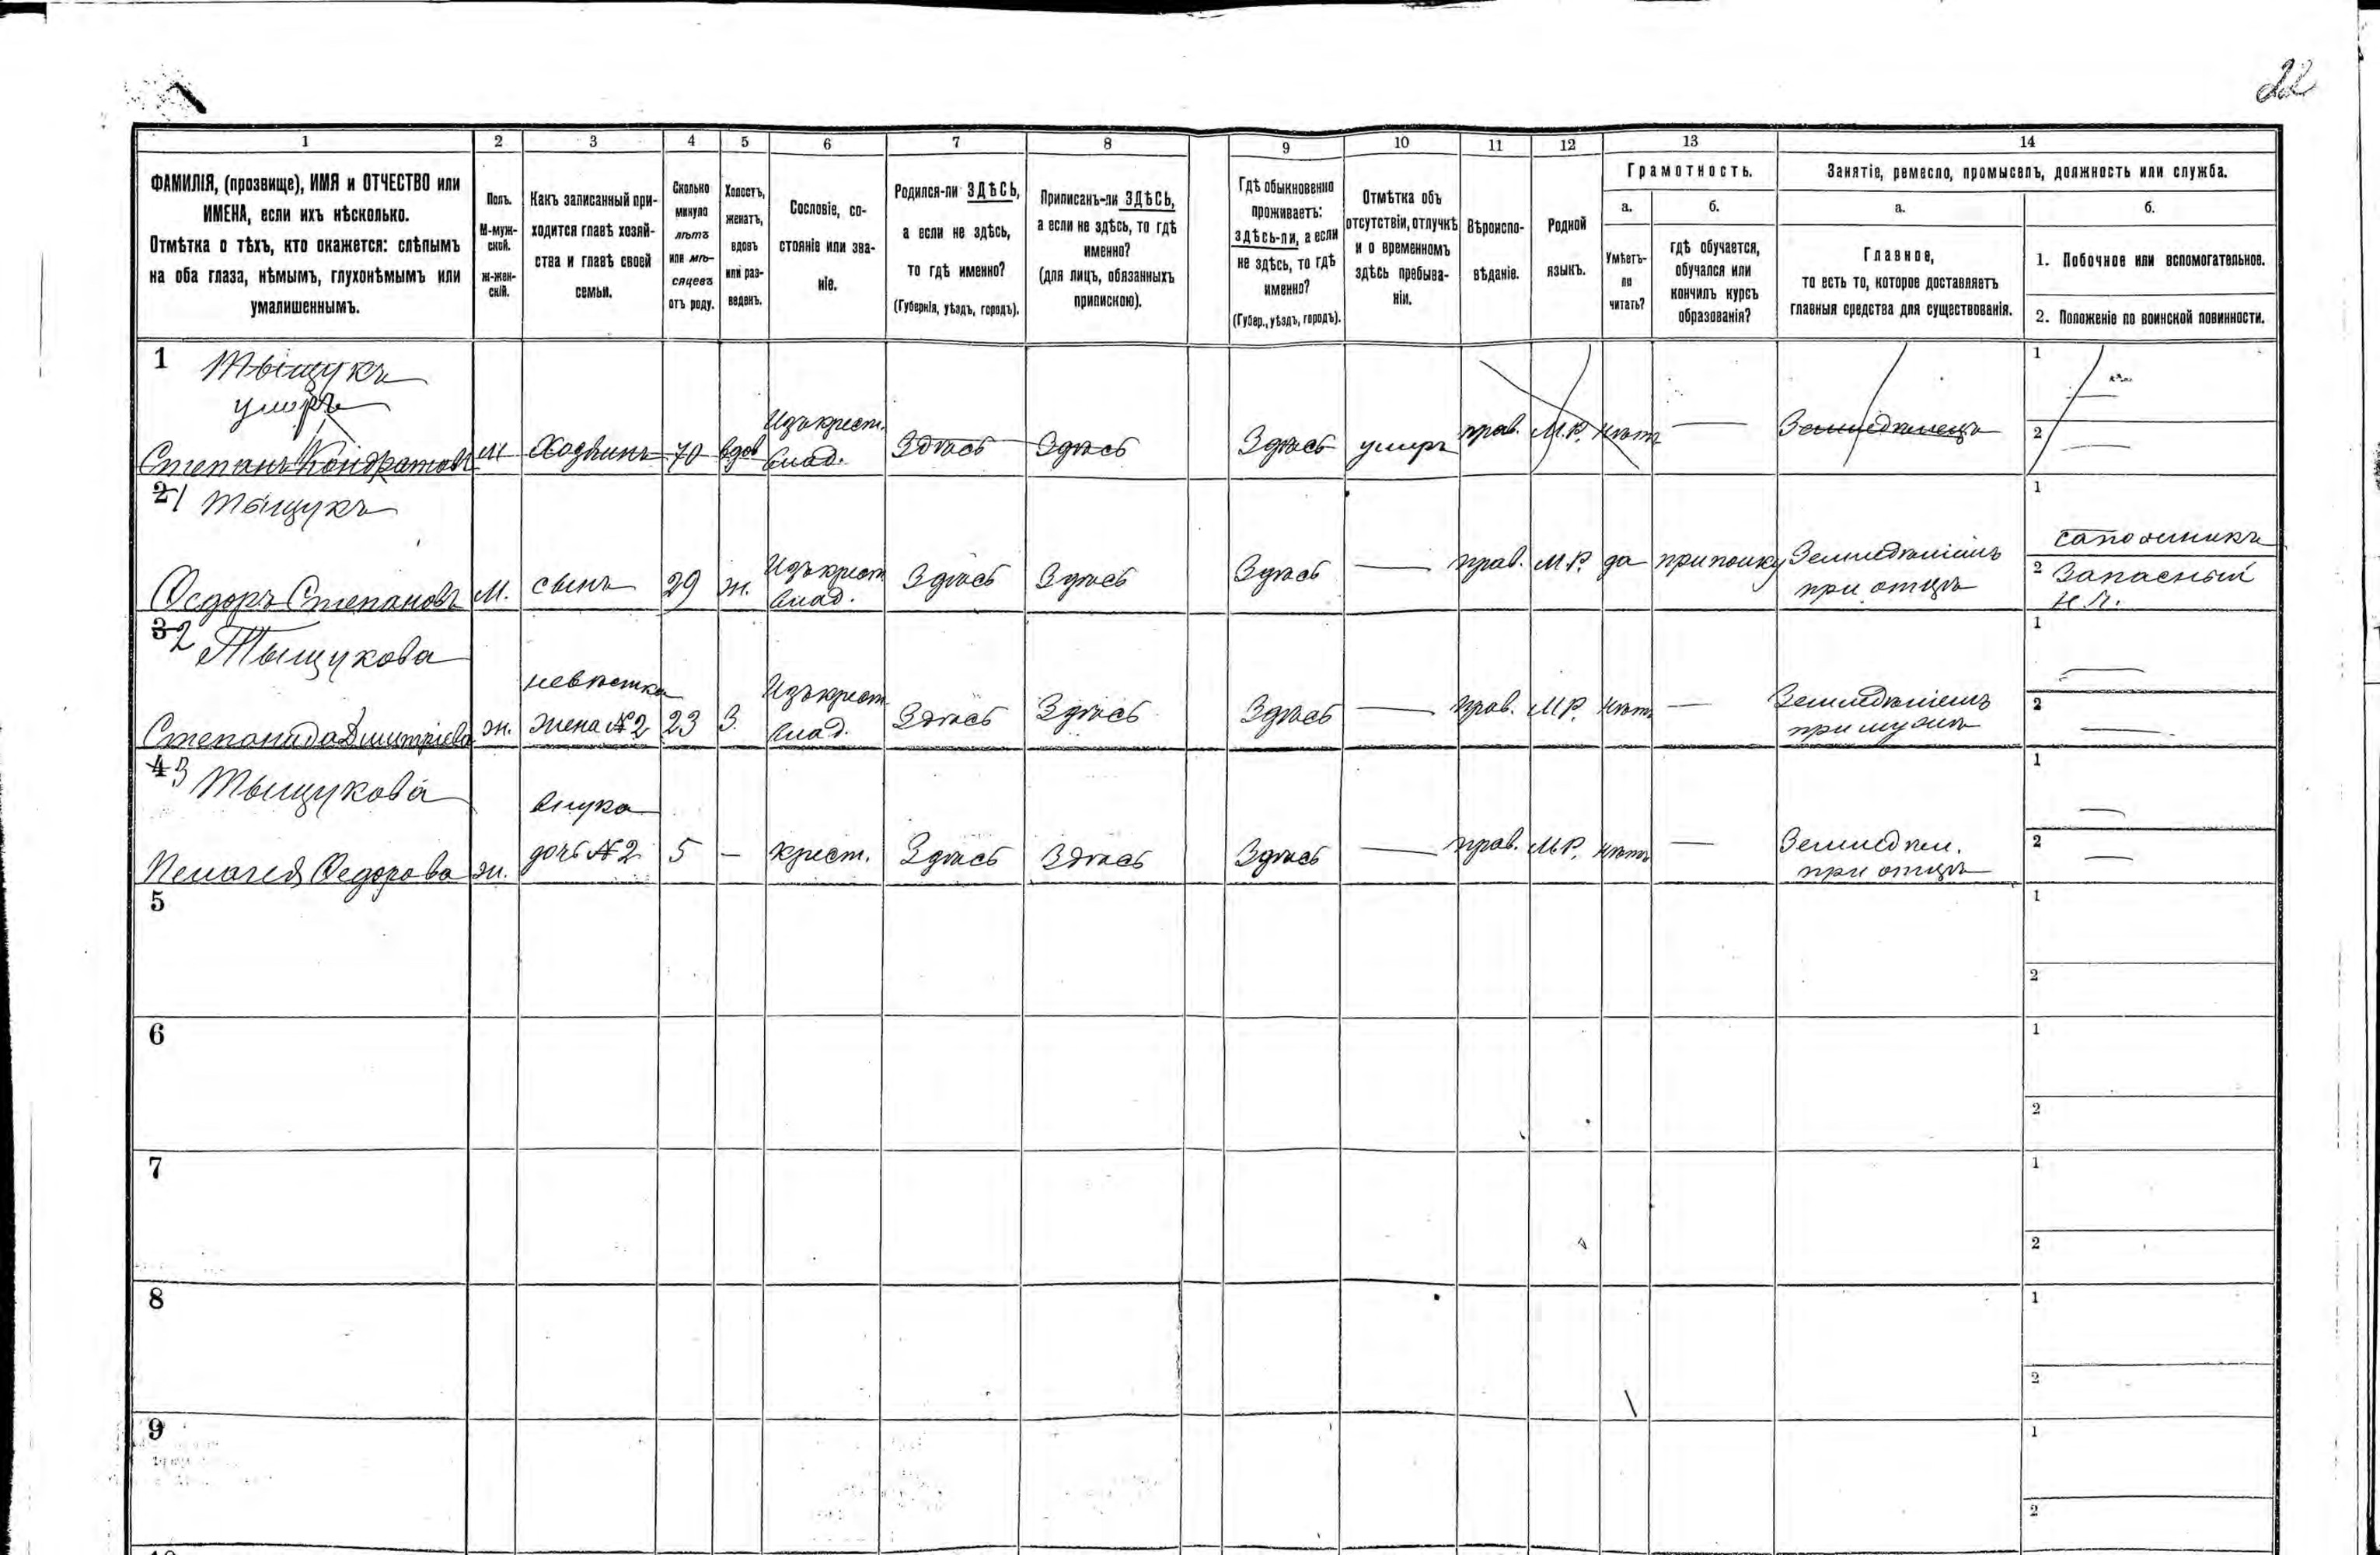 22
1 2 3 4 5 6 7 8 9 10 11 12 13 14
ФАМИЛІЯ, (прозвище), ИМЯ и ОТЧЕСТВО или
ИМЕНА, если ихъ нѣсколько.
Отмѣтка о тѣхъ, кто окажется: слѣпымъ
на оба глаза, нѣмымъ, глухонѣмымъ или
умалишеннымъ.
Полъ.
М-муж-
ской.
ж-жен-
скій.
Какъ записанный при-
ходится главѣ хозяй-
ства и главѣ своей
семьи.
Сколько
минуло
лѣтъ
или мѣ-
сяцевъ
отъ роду.
Холостъ,
женатъ,
вдовъ
или раз-
веденъ.
Сословіе, со-
стояніе или зва-
ніе.
Родился-ли ЗДѢСЬ,
а если не здѣсь,
то гдѣ именно?
(Губернія, уѣздъ, городъ).
Приписанъ-ли ЗДѢСЬ,
а если не здѣсь, то гдѣ
именно?
(для лицъ, обязанныхъ
припискою).
Гдѣ обыкновенно
проживаетъ:
здѣсь-ли, а если
не здѣсь, то гдѣ
именно?
(Губер., уѣздъ, городъ).
Отмѣтка объ
отсутствіи, отлучкѣ
и о временномъ
здѣсь пребыва-
ніи.
Вѣроиспо-
вѣданіе.
Родной
языкъ.
Грамотность.
а.
Умѣетъ-
ли
читать?
б.
гдѣ обучается,
обучался или
кончилъ курсъ
образованія?
Занятіе, ремесло, промыселъ, должность или служба.
а.
Главное,
то есть то, которое доставляетъ
главныя средства для существованія.
б.
1. Побочное или вспомогательное.
2. Положеніе по воинской повинности.
1 Тыщукъ
умеръ
Степанъ Кондратовъ М Хозяинъ 70 вдов Изъ крест. влад. Здѣсь Здѣсь Здѣсь умеръ прав. М.Р. нѣтъ — Земледѣлецъ 1 — 2 —
2 1 Тыщукъ
Ѳедоръ Степановъ М. сынъ 29 ж. Изъ крест влад. Здѣсь Здѣсь Здѣсь — прав. М.Р. да при полку Земледѣліемъ при отцѣ 1 сапожникъ 2 Запасный
3 2 Тыщукова
Степанида Димитріева ж. невѣстка жена №2 23 З. Изъ крест влад. Здѣсь Здѣсь Здѣсь — прав. М.Р. нѣтъ — Земледѣліемъ при мужѣ 1 — 2 —
4 3 Тыщукова
Пелагея Ѳедорова ж. внука дочь №2 5 — крест. Здѣсь Здѣсь Здѣсь — прав. М.Р. нѣтъ — Земледѣл. при отцѣ 1 — 2 —
5 1
2
6 1
2
7 1
2
8 1
2
9 1
2